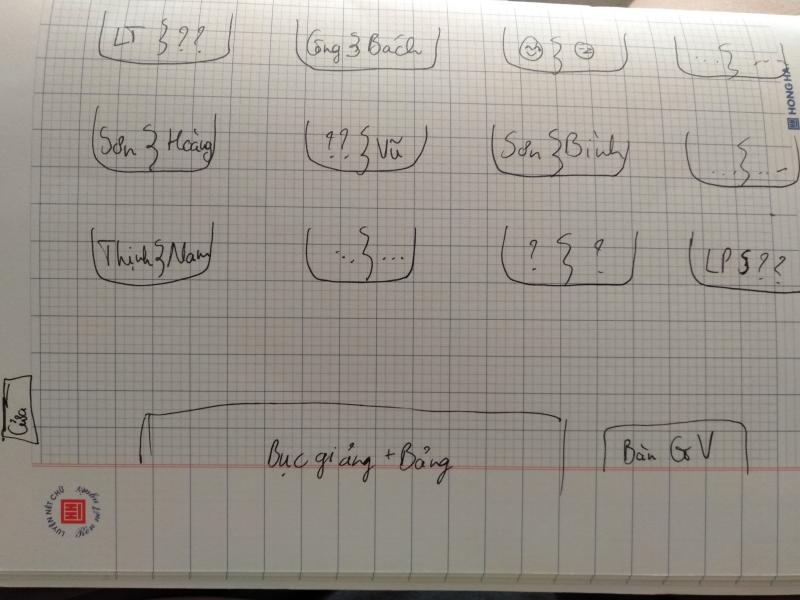 LT } ??
Công } Bách
😊 } 😑
... } ...
Sơn } Hoàng
?? } Vũ
Sơn } Bình
... } ...
Thịnh } Nam
... } ...
? } ?
LP } ??
Cửa
Bục giảng + Bảng
Bàn GV
HONG HA
LUYỆN NÉT CHỮ